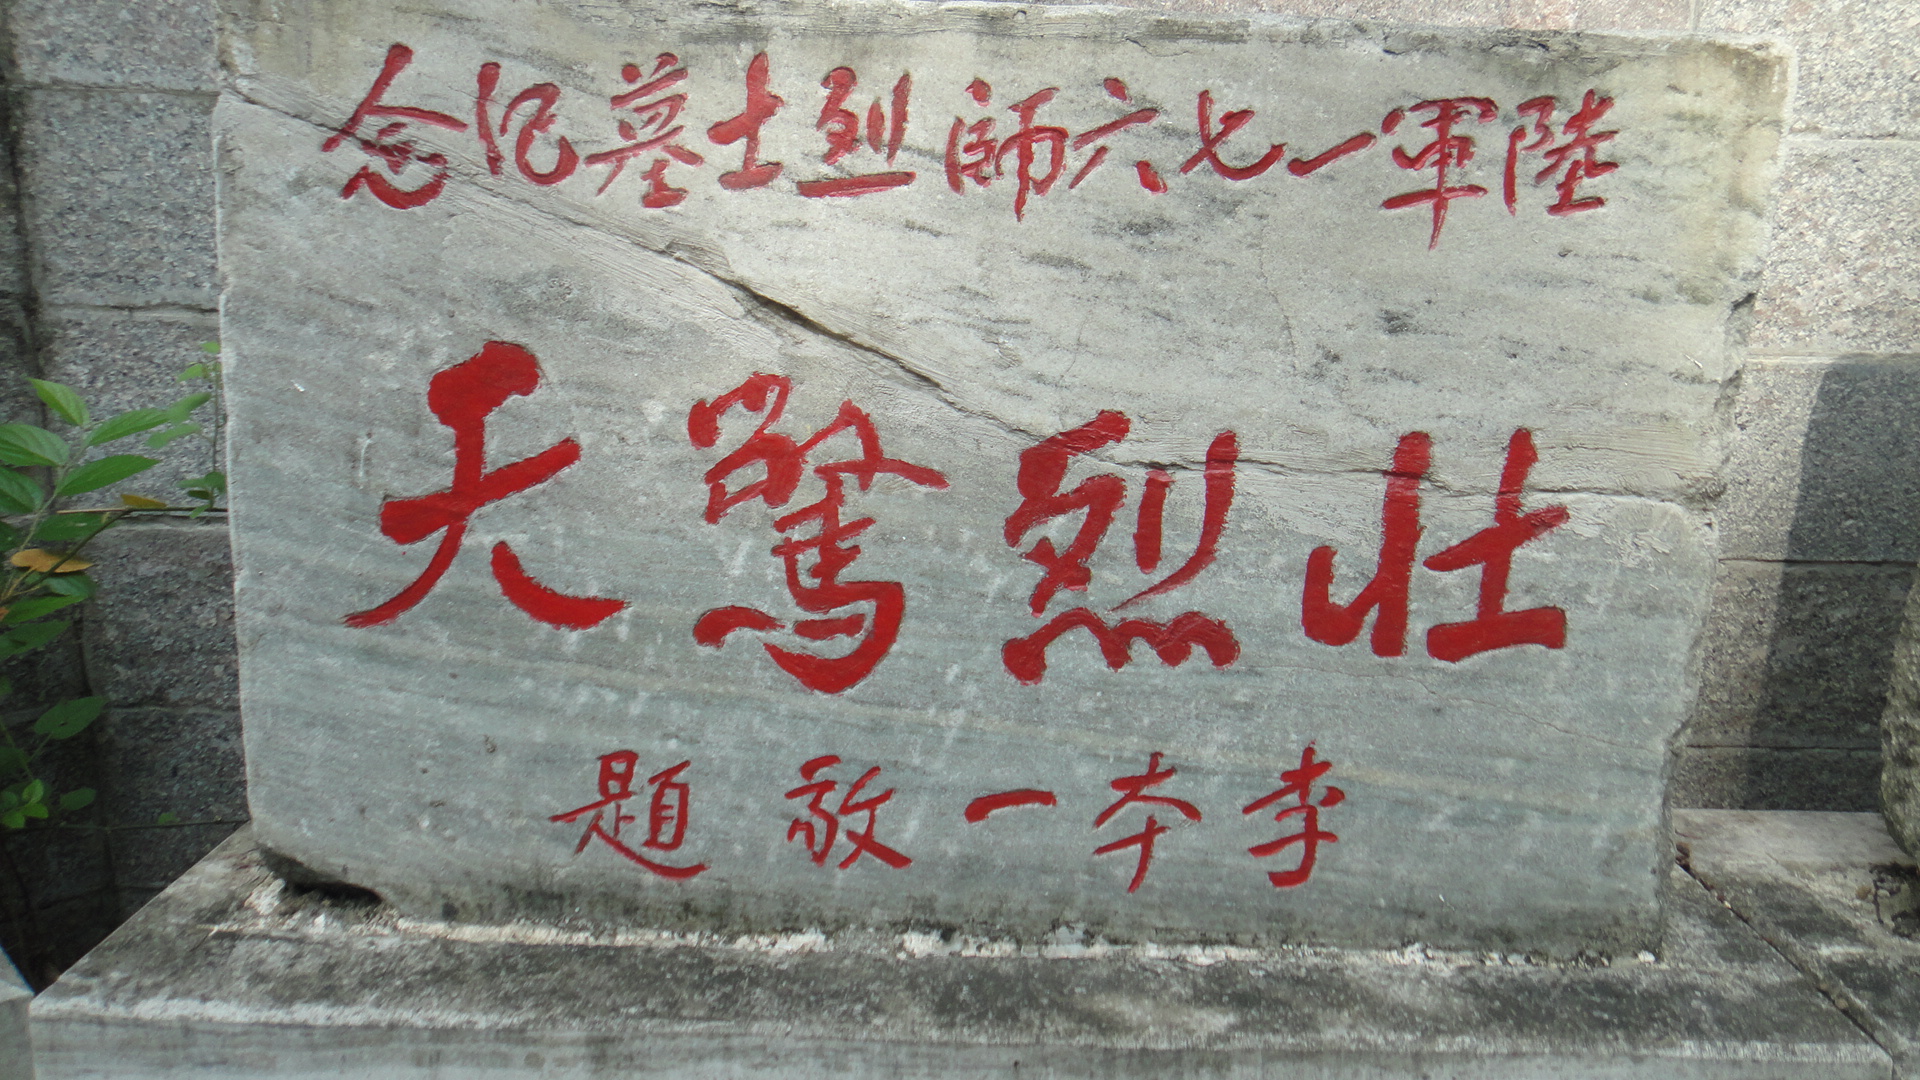 陸軍一七六師烈士墓紀念
壯烈驚天
李本一敬題